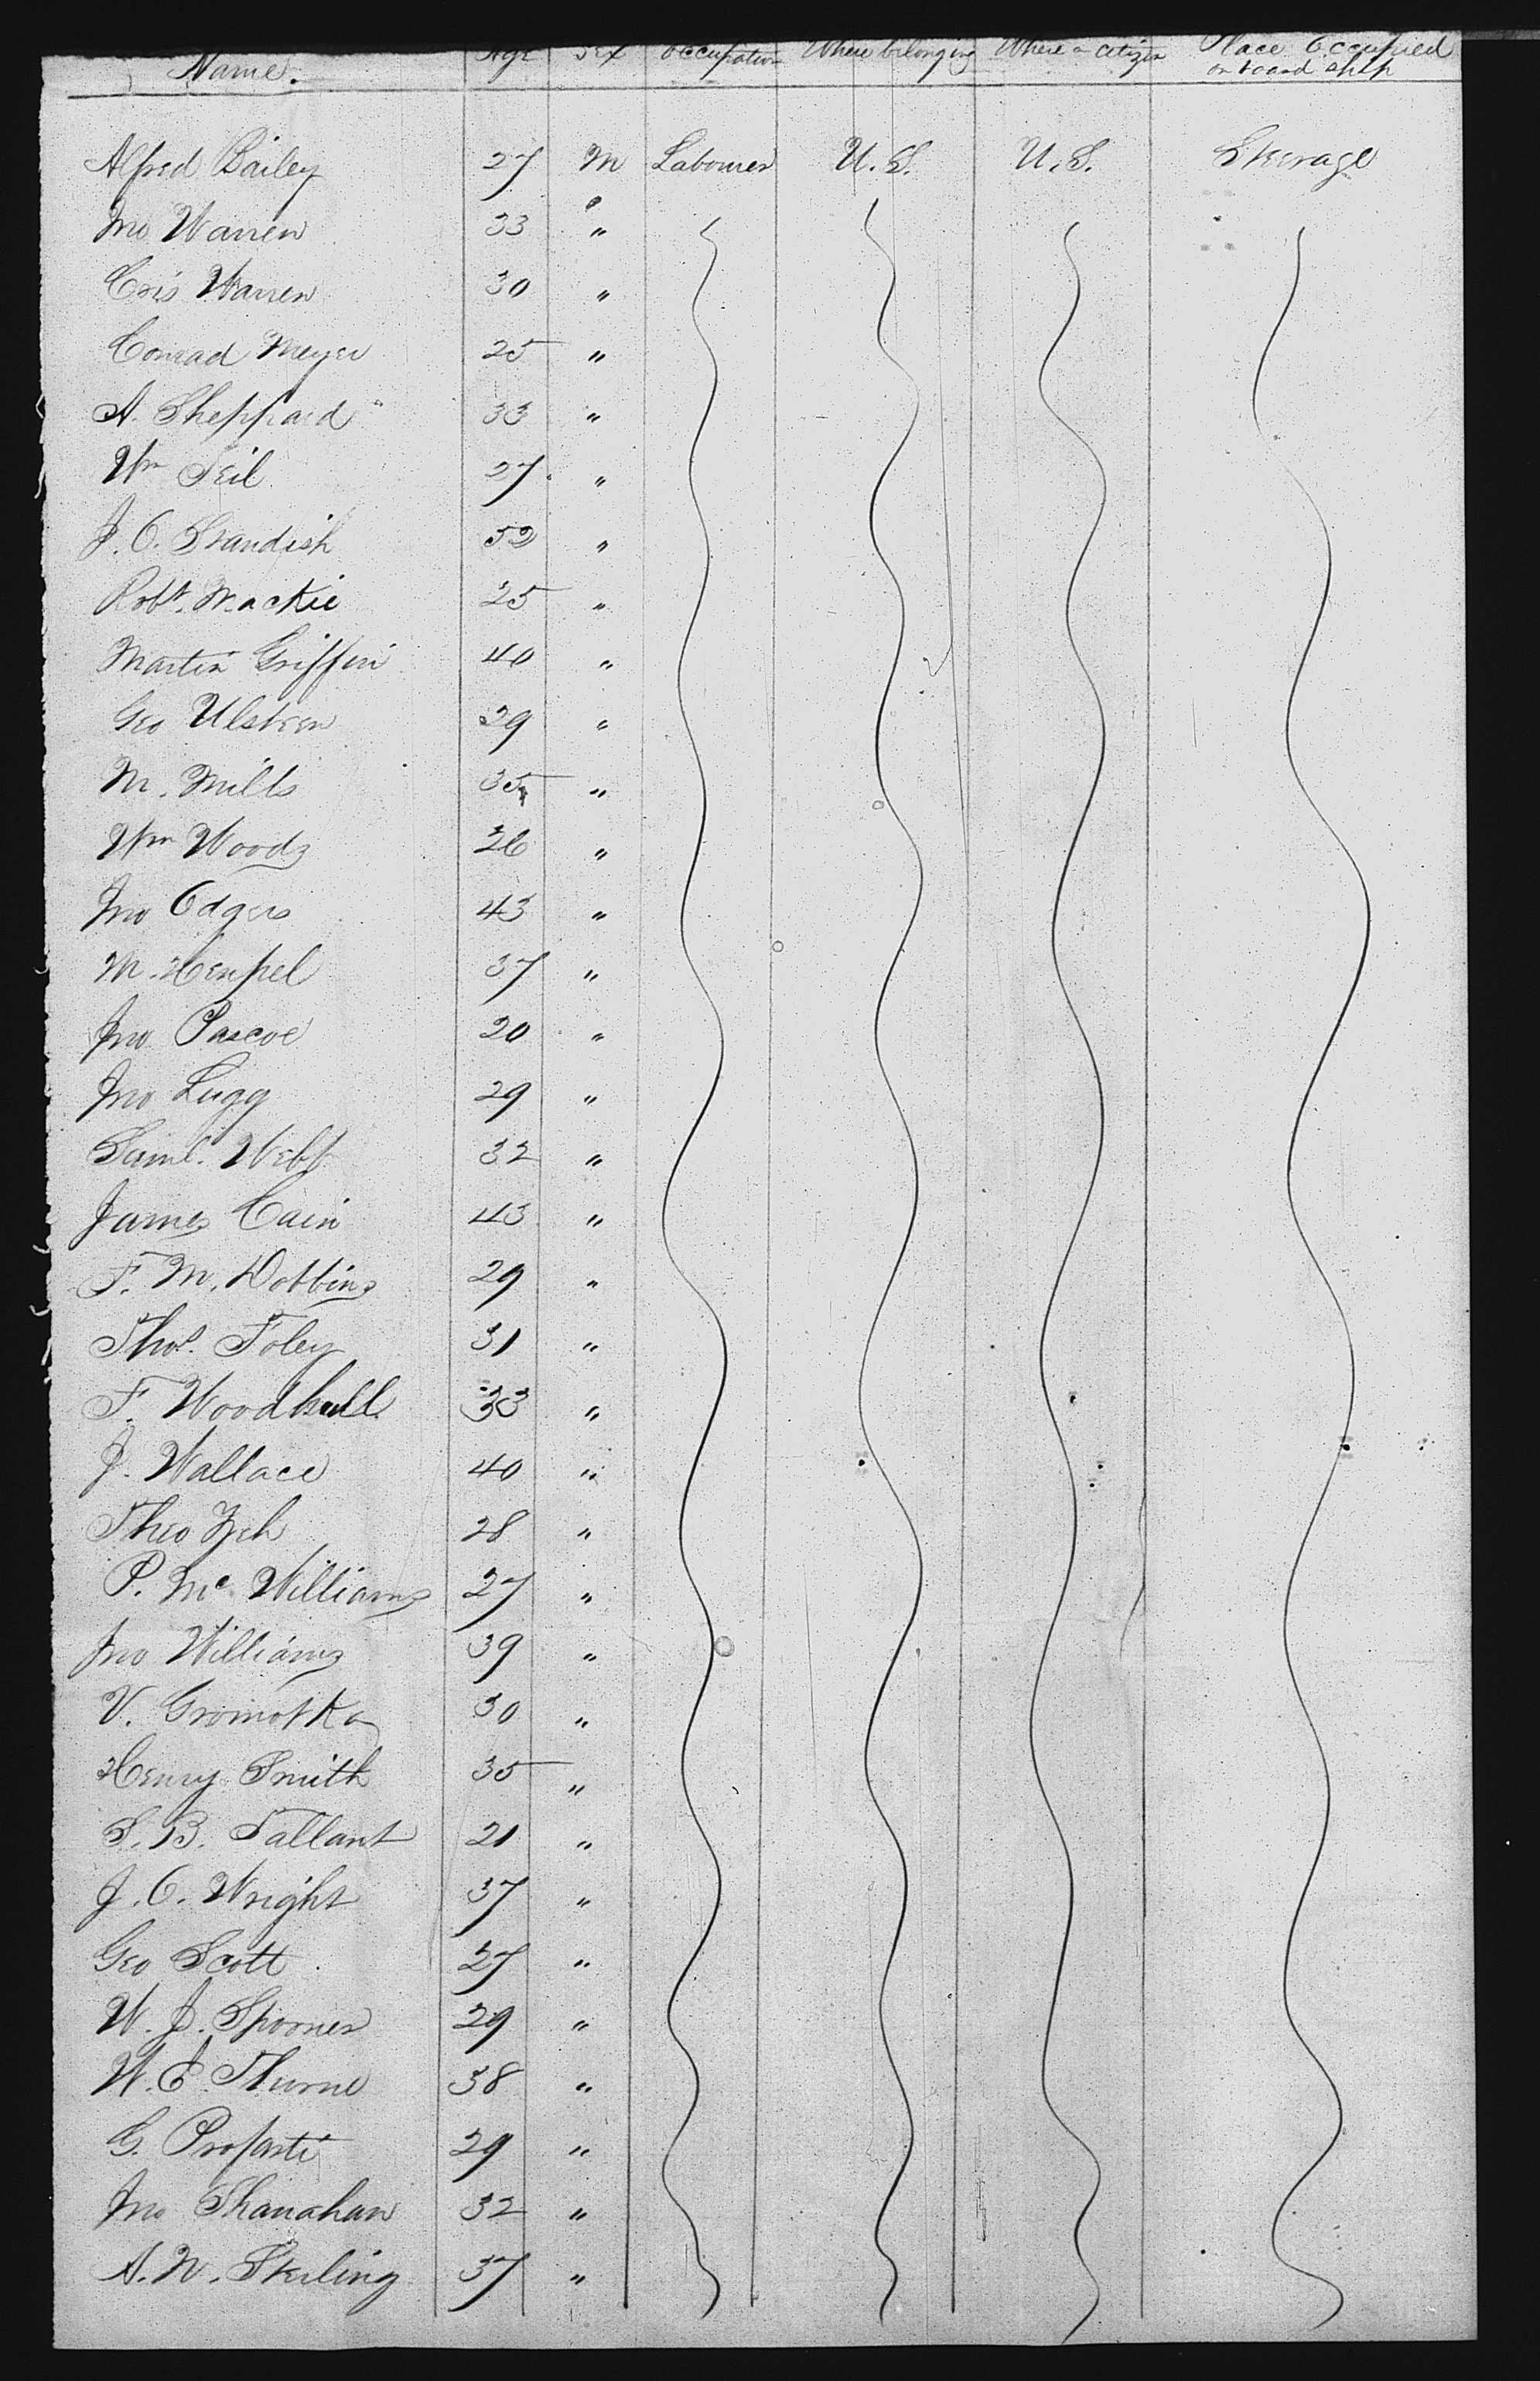 Name. Age Sex Occupation Where belonging Where a citizen Place Occupied on board ship
Alfred Bailey 27 M Labourer U.S. U.S. Steerage
Jno Warren 33 "
Cris Warren 30 "
Conrad Meyer 25 "
A. Sheppard 33 "
Wm Teil 27 "
J. C. Standish 52 "
Robt. Mackie 25 "
Martin Griffin 40 "
Geo Ulsteen 29 "
M. Mills 35 "
Wm Woods 26 "
Jno Odgers 43 "
M. Henpel 37 "
Jno Pascoe 20 "
Jno Lugg 29 "
Saml. Webb 32 "
James Cain 43 "
F. M. Dobbins 29 "
Thos. Foley 31 "
F. Woodhull 33 "
J. Wallace 40 "
Theo Zeh 28 "
P. Mc Williams 27 "
Jno Williams 39 "
V. Gromotka 30 "
Henry Smith 35 "
S. B. Tallant 21 "
J. C. Wright 37 "
Geo Scott 27 "
W. J. Spooner 29 "
W. E. Thurne 38 "
G. 29 "
Jno Shanahan 32 "
A. W. Sterling 37 "